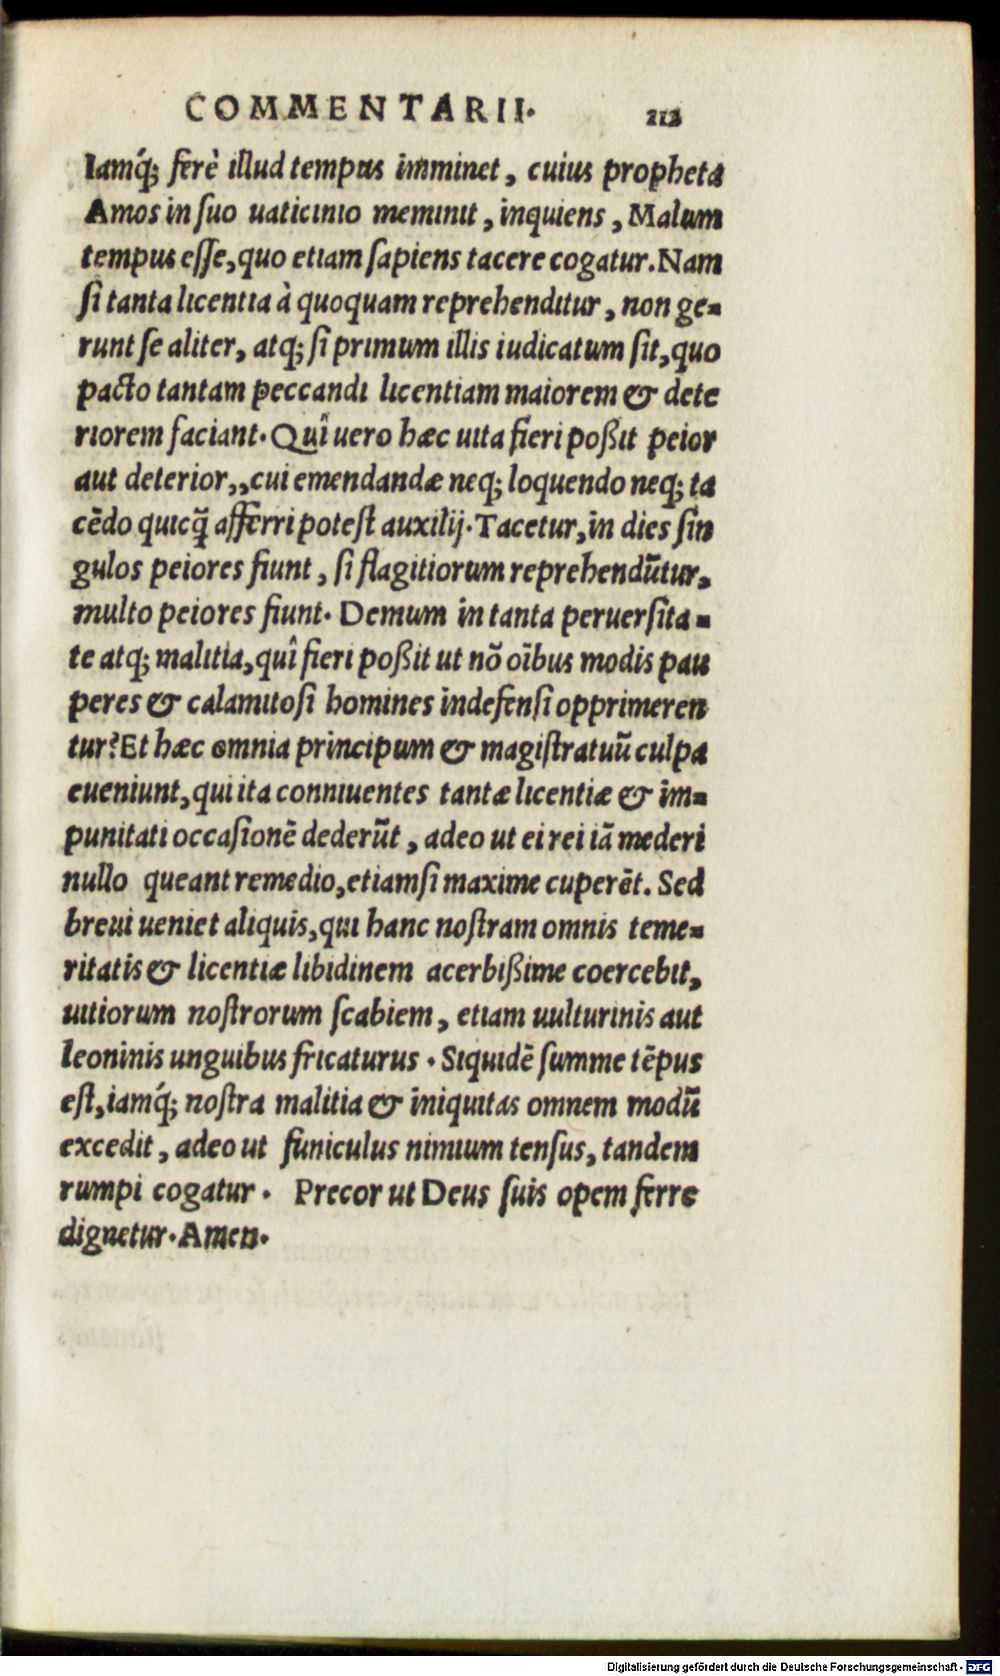 COMMENTARII. 212
Iamq́; ferè illud tempus imminet, cuius propheta
Amos in suo uaticinio meminit, inquiens, Malum
tempus esse, quo etiam sapiens tacere cogatur. Nam
si tanta licentia à quoquam reprehenditur, non ge=
runt se aliter, atq; si primum illis iudicatum sit, quo
pacto tantam peccandi licentiam maiorem & dete
riorem faciant. Quî uero hæc uita fieri poßit peior
aut deterior,, cui emendandæ neq; loquendo neq; ta
cēdo quicq̃ afferri potest auxilij. Tacetur, in dies sin
gulos peiores fiunt, si flagitiorum reprehendūtur,
multo peiores fiunt. Demum in tanta peruersita=
te atq; malitia, quî fieri poßit ut nō oībus modis pau
peres & calamitosi homines indefensi opprimeren
tur? Et hæc omnia principum & magistratuū culpa
eueniunt, qui ita conniuentes tantæ licentiæ & im=
punitati occasionē dederūt, adeo ut ei rei iā mederi
nullo queant remedio, etiamsi maxime cuperēt. Sed
breui ueniet aliquis, qui hanc nostram omnis teme=
ritatis & licentiæ libidinem acerbißime coercebit,
uitiorum nostrorum scabiem, etiam uulturinis aut
leoninis unguibus fricaturus. Siquidē summe tēpus
est, iamq́; nostra malitia & iniquitas omnem modū
excedit, adeo ut funiculus nimium tensus, tandem
rumpi cogatur. Precor ut Deus suis opem ferre
dignetur. Amen.
Digitalisierung gefördert durch die Deutsche Forschungsgemeinschaft - DFG